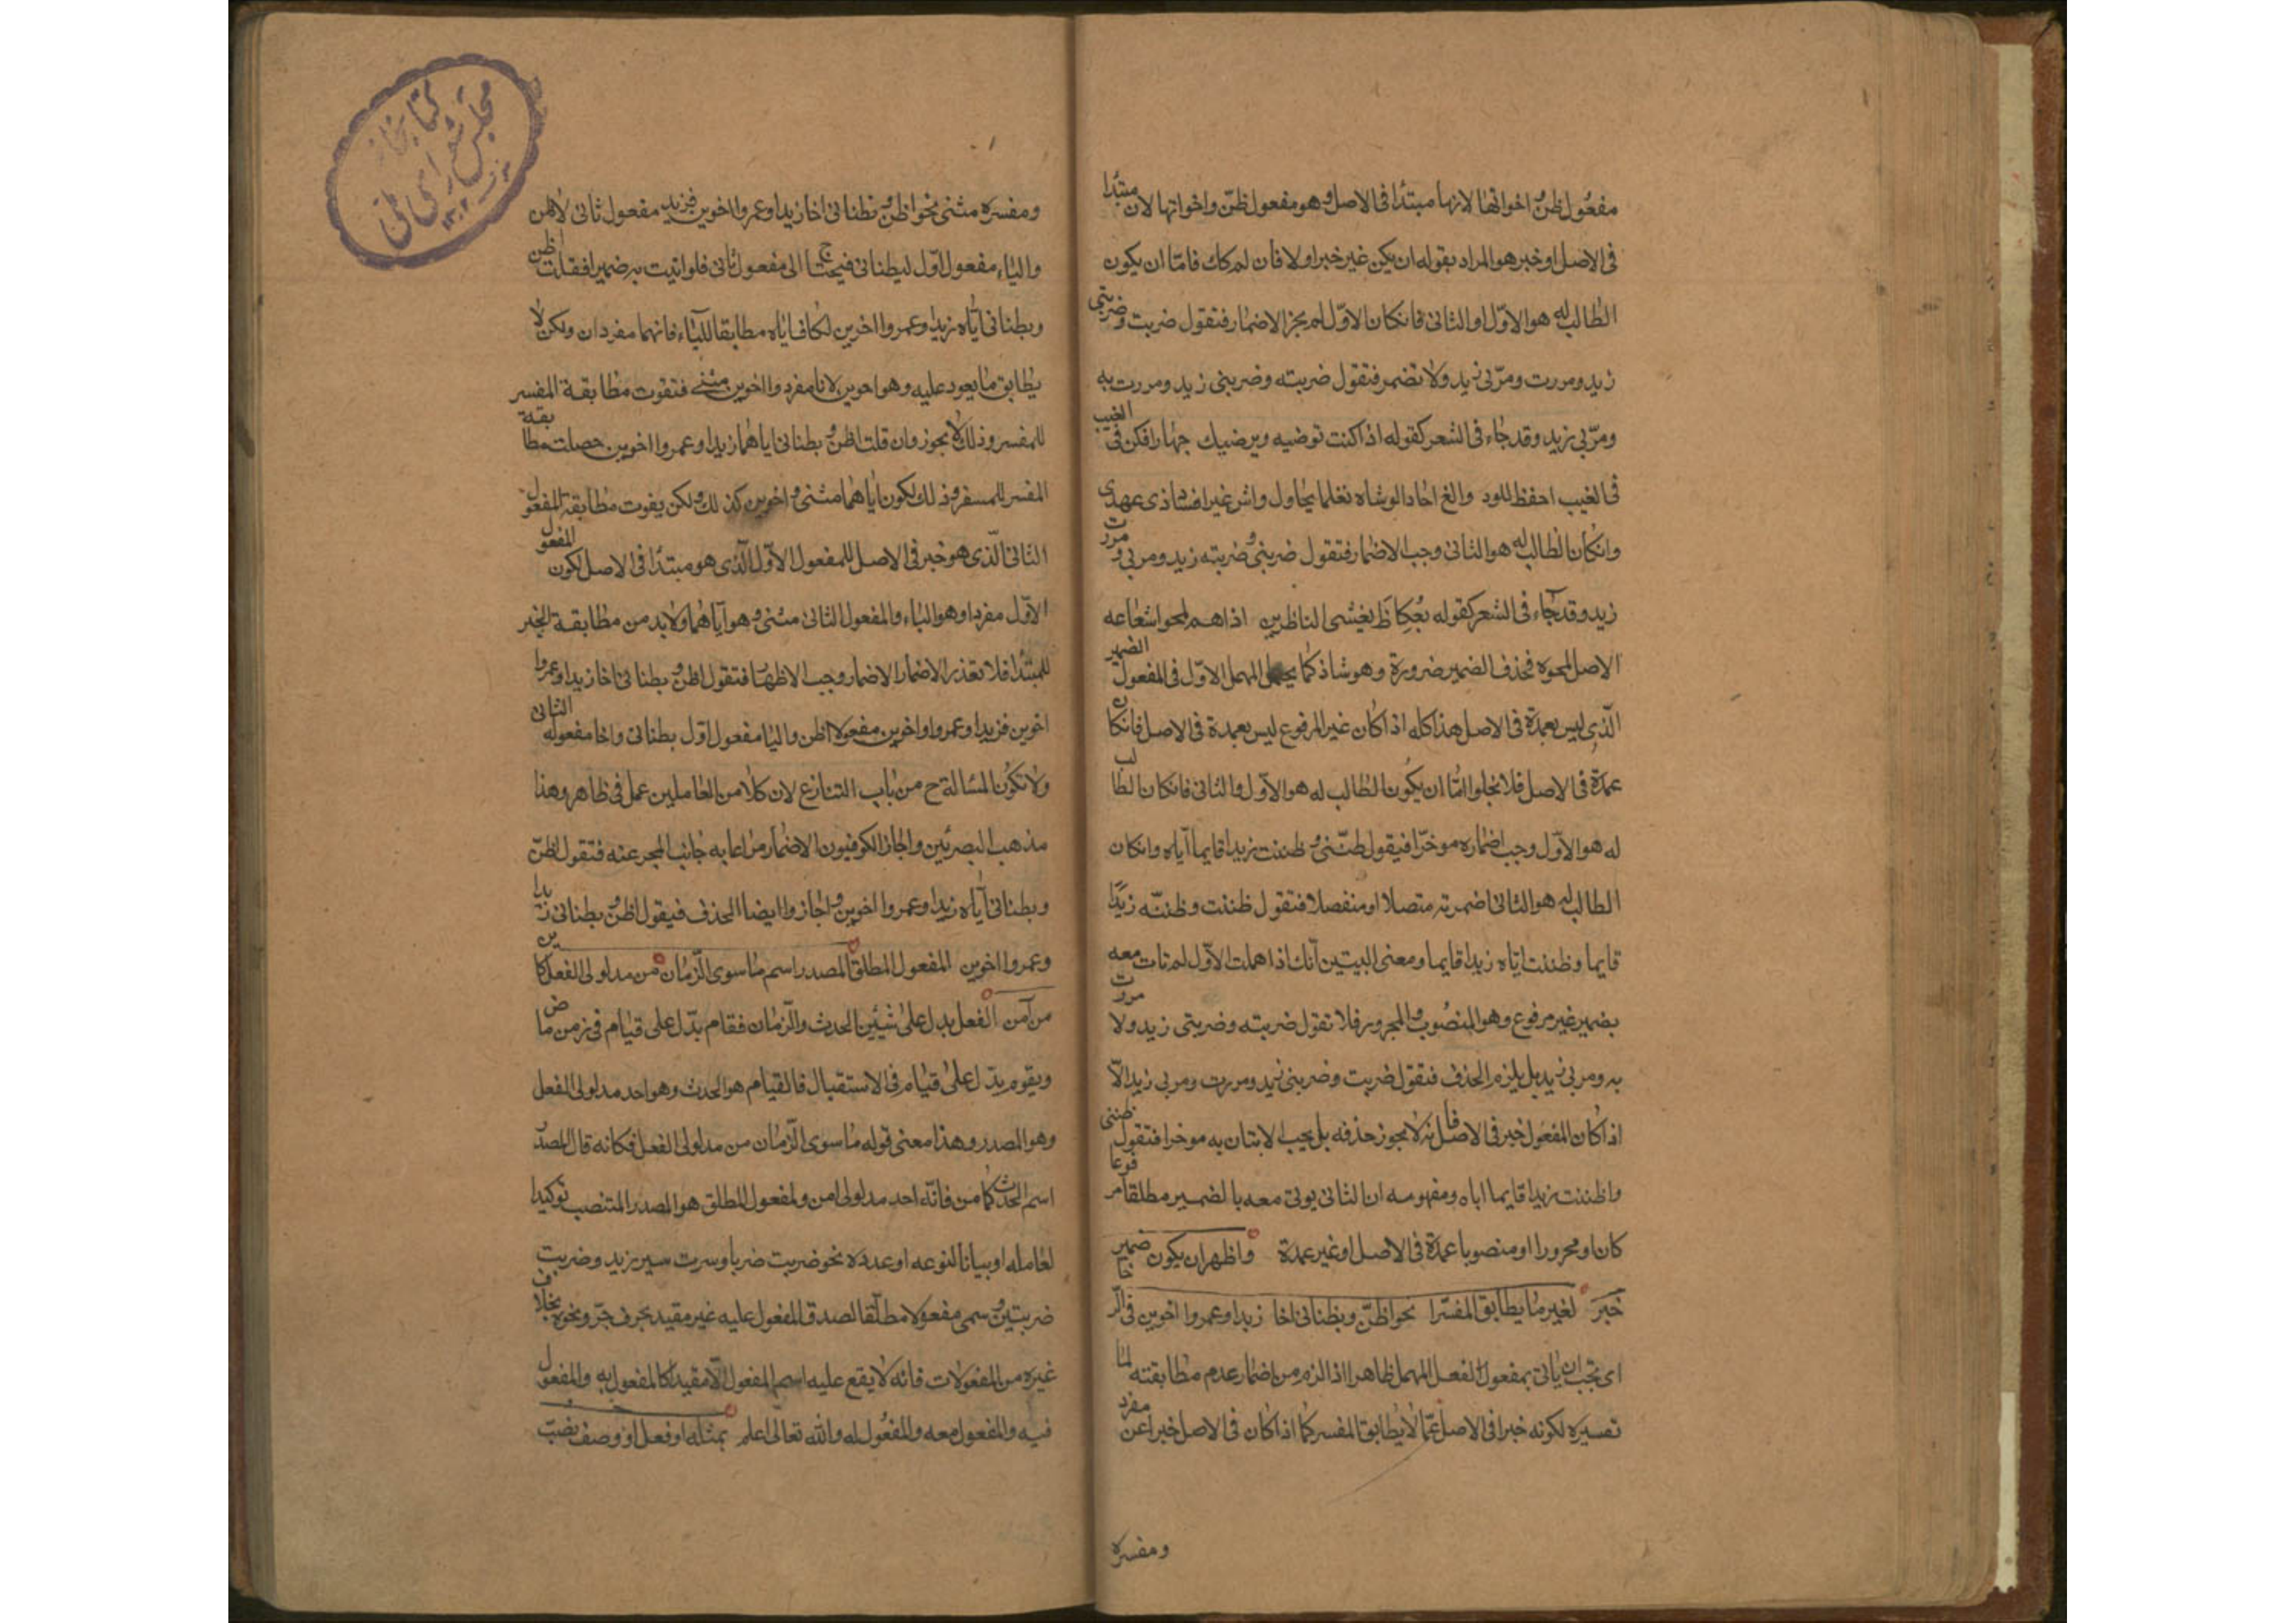 مفعول ظن واخواتها لانها مبتدأ فى الاصل وهو مفعول ظنّ واخواتها لان مبتدا
فى الاصل او خبر هو المراد بقوله ان يكن غير خبر اولا فان لم كك فامّا ان يكون
الطالب له هو الاوّل او الثانى فانكان الاوّل لم يجز الاضمار فتقول ضربت وضربنى
زيد ومررت ومرّ بى زيد ولا تضمر فتقول ضربته وضربنى زيد ومررت به
ومرّ بى زيد وقد جاء فى الشعر كقوله اذا كنت توضيه ويرضيك جهارا فكن فى الغيب
فى الغيب احفظ للود والغ احاد الوشاه نغلما يحاول واش غير افساذى عهدى
وانكان الطالب له هو الثانى وجب الاضمار فتقول ضربنى وضربته زيد ومر بى ومررت
زيد وقد جاء فى الشعر كقوله بعكاظ يغشى الناظرين اذا هم لمحوا شعاعه
الاصل لمحوه فحذف الضمير ضرورة وهو شاذ كما المهمل الاوّل فى المفعول الضمير
الّذى ليس بعمدة فى الاصل هذا كله اذا كان غير المرفوع ليس بعمدة فى الاصل فانكان
عمدة فى الاصل فلا يخلوا امّا ان يكون الطالب له هو الاوّل والثانى فانكان الطالب
له هو الاوّل وجب اضماره موخّرا فيقول ظنّنى وظننت زيدا قايما اياه وانكان
الطالب له هو الثانى اضمرته متصلا او منفصلا فتقول ظننت وظننّه زيدًا
قايما وظننت ايّاه زيدا قايما ومعنى البيتين انّك اذا اهملت الاوّل لم تات معه
بضمير غير مرفوع وهو المنصوب والمجرور فلا تقول ضربته وضربتى زيد ولا مررت
به ومر بى زيد بل يلزم الحذف فتقول ضربت وضربنى زيد ومررت ومر بى زيد الّا
اذا كان المفعول خبر فى الاصل فانه لا يجوز حذفه بل يجب الاتيان به موخرا فتقول ظننى
واظننت زيدا قايما اياه ومفهومه ان الثانى يوتى معه بالضمير مطلقا مرفوعا
كان او مجرورا او منصوبا عمدة فى الاصل او غير عمدة واظهر ان يكون ضمير
خبرَ لغير ما يطابق المفسّرا نحو اظنّ ويظنانى اخا زيدا وعمروا اخوين فى الرخا
اى يجب ان ياتى بمفعول الفعل المهمل ظاهرا اذا لزم من اضمار عدم مطابقته لما
تفسيره لكونه خبرا فى الاصل عمّا لا يطابق المفسر كما اذا كان فى الاصل خبرا عن مفرد
ومفسره
ومفسره مثنى نحو اظن ويظنانى اخا زيدا وعمروا اخوين فزيد مفعول ثانى لاظن
والياء مفعول اوّل ليظنانى فيحتاج الى مفعول ثانى فلو اتيت به ضميرا فقلت اظن
ويظنانى ايّاه زيدا وعمروا اخرين لكان اياه مطابقا للياء فانهما مفردان ولكن لا
يطابق ما يعود عليه وهو اخوين لانا مفرد وااخوين مثنى فتفوت مطابقة المفسر
للمفسر وذلك لا يجوز وان قلت اظن ويظنانى اياهما زيدا وعمروا اخوين حصلت مطابقة
المفسر للمسفر وذلك لكون اياهما مثنى واخوين كذلك ولكن يفوت مطابقة المفعول
الثانى الّذى هو خبر فى الاصل للمفعول الاوّل الّذى هو مبتدأ فى الاصل لكون المفعول
الاوّل مفردا وهو الياء والمفعول الثانى مثنى وهو اياهما ولابد من مطابقة الخبر
للمبتدا فلا تعذر الاضمار وجب الاظهار فتقول اظن ويظنانى اخا زيدا وعمروا
اخوين فزيدا وعمروا واخوين مفعولا اظن واليا مفعول اوّل يظنانى واخا مفعوله الثانى
ولا تكون المسالة ح من باب التنازع لان كلا من العاملين عمل فى ظاهر وهذا
مذهب البصريين واجاز الكوفيون الاضمار مراعا به جانب المخبر عنه فتقول اظنّ
ويظنانى ايّاه زيدا وعمروا اخوين واجازوا ايضا الحذف فيقول اظن ويظنانى زيدا
وعمروا اخوين المفعول المطلق المصدر اسم ما سوى الزّمان من مدلولى الفعل كامن
من آمن الفعل يدل على شيئين الحدث والزّمان فقام يدّل على قيام فى زمن ماض
ويقوم يدّل على قيام فى الاستقبال فالقيام هو الحدث وهو احد مدلولى الفعل
وهو المصدر وهذا معنى قوله ما سوى الزّمان من مدلولى الفعل فكانه قال المصدر
اسم الحدث كامن فانّه احد مدلولى امن والمفعول المطلق هو المصدر المنتصب توكيدا
لعامله او بيانا لنوعه او عدده نحو ضربت ضربا وسرت سير زيد وضربت
ضربتين وسمى مفعولا مطلقا لصدق المفعول عليه غير مقيد بحرف جرّ ونحوه بخلاف
غيره من المفعولات فانه لا يقع عليه اسم المفعول الّا مقيدا كالمفعول به والمفعول
فيه والمفعول معه والمفعول له والله تعالى اعلم بمثله او فعل او وصف نصب
كتابخانه
مجلس شوراى ملى